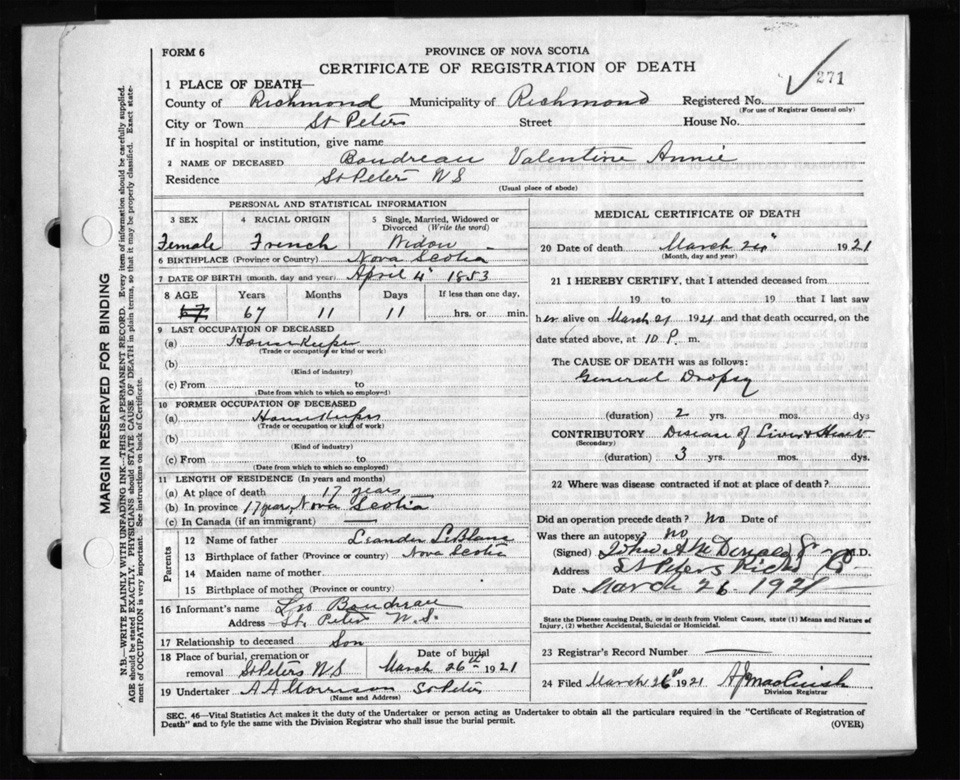 FORM 6
PROVINCE OF NOVA SCOTIA
CERTIFICATE OF REGISTRATION OF DEATH
271
1 PLACE OF DEATH—
County of Richmond Municipality of Richmond Registered No.
(For use of Registrar General only)
City or Town St Peters Street House No.
If in hospital or institution, give name
2 NAME OF DECEASED Boudreau Valentine Annie
Residence St Peters N S
(Usual place of abode)
PERSONAL AND STATISTICAL INFORMATION
3 SEX 4 RACIAL ORIGIN 5 Single, Married, Widowed or Divorced (Write the word)
Female French Widow
6 BIRTHPLACE (Province or Country) Nova Scotia
7 DATE OF BIRTH (month, day and year) April 4 1853
8 AGE Years Months Days If less than one day,
67 67 11 11 hrs. or min.
9 LAST OCCUPATION OF DECEASED
(a) Housekeeper
(Trade or occupation or kind or work)
(b)
(Kind of industry)
(c) From to
(Date from which to which so employed)
10 FORMER OCCUPATION OF DECEASED
(a) Housekeeper
(Trade or occupation or kind of work)
(b)
(Kind of industry)
(c) From to
(Date from which to which so employed)
11 LENGTH OF RESIDENCE (In years and months)
(a) At place of death 17 years
(b) In province 17 years, Nova Scotia
(c) In Canada (if an immigrant)
Parents
12 Name of father Leander LeBlanc
13 Birthplace of father (Province or country) Nova Scotia
14 Maiden name of mother
15 Birthplace of mother (Province or country)
16 Informant's name Leo Boudreau
Address St. Peters N.S.
17 Relationship to deceased Son
18 Place of burial, cremation or removal St Peters N S Date of burial March 26th 1921
19 Undertaker A A Morrison St Peters
(Name and Address)
MEDICAL CERTIFICATE OF DEATH
20 Date of death March 24" 1921
(Month, day and year)
21 I HEREBY CERTIFY, that I attended deceased from
19 to 19 that I last saw
her alive on March 21 1921 and that death occurred, on
date stated above, at 10 P. m.
The CAUSE OF DEATH was as follows:
General Dropsy
(duration) 2 yrs. mos. dys
CONTRIBUTORY Disease of Liver & Heart
(Secondary)
(duration) 3 yrs. mos. dys.
22 Where was disease contracted if not at place of death?
Did an operation precede death? No Date of
Was there an autopsy? No
(Signed) John A McDonald M.D.
Address St Peters Rich Co
Date March 26 1921
State the Disease causing Death, or in death from Violent Causes, state (1) Means and Nature of
Injury, (2) whether Accidental, Suicidal or Homicidal.
23 Registrar's Record Number
24 Filed March 26 1921 A J MacCuish
Division Registrar
SEC. 46—Vital Statistics Act makes it the duty of the Undertaker or person acting as Undertaker to obtain all the particulars required in the "Certificate of Registration of
Death" and to fyle the same with the Division Registrar who shall issue the burial permit.
(OVER)
MARGIN RESERVED FOR BINDING
N.B.—WRITE PLAINLY WITH UNFADING INK—THIS IS A PERMANENT RECORD. Every item of information should be carefully supplied.
AGE should be stated EXACTLY. PHYSICIANS should STATE CAUSE OF DEATH in plain terms, so that it may be properly classified. Exact state-
ment of OCCUPATION is very important. See instructions on back of Certificate.